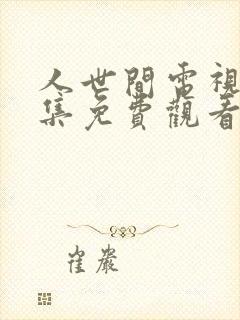 人世間電視
集免費觀看
崔巖